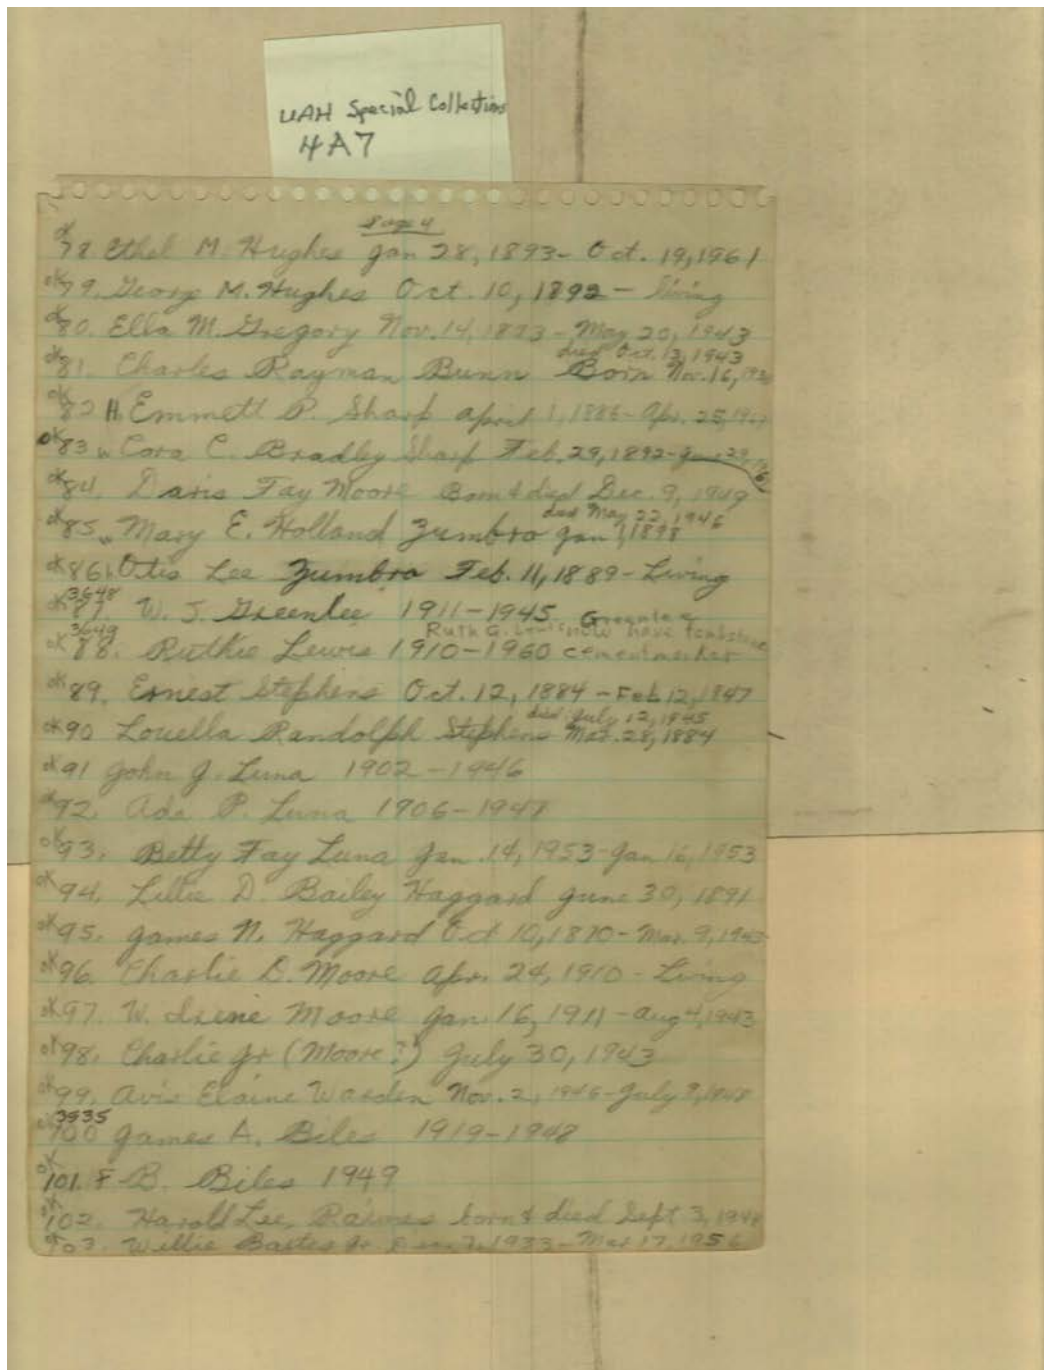 UAH Special Collections
4A7
Page 4
ok 78 Ethel M. Hughes Jan 28, 1893- Oct. 19, 1961
ok 79. George M. Hughes Oct. 10, 1892 - living
ok 80. Ella M. Gregory Nov. 14, 1873 - May 20, 1943
died Oct. 13, 1943
ok 81. Charles Rayman Bunn Born Nov. 16,
ok 82 H. Emmett P. Sharp April 1, 1886 - Apr. 25,
ok 83 w Cora C. Bradley Sharp Feb. 29, 1892 -
ok 84. Daris Fay Moore Born & died Dec. 9, 1949
died May 22, 1946
ok 85 w Mary E. Holland Zumbro Jan 1, 1898
ok 86 h Otis Lee Zumbro Feb. 11, 1889 - Living
3648
ok 87. W. J. Greenlee 1911-1945 Greenlee
3649 Ruth G. Lewis now have tombstone
ok 88. Ruthie Lewis 1910-1960 cementmarker
ok 89. Ernest Stephens Oct. 12, 1884 - Feb 12, 1847
died July 12, 1945
ok 90 Louella Randolph Stephens Mar. 28, 1884
ok 91 John J. Luna 1902 - 1946
ok 92. Ada P. Luna 1906 - 1947
ok 93. Betty Fay Luna Jan. 14, 1953 - Jan 16, 1953
ok 94. Lillie D. Bailey Haggard June 30, 1891
ok 95. James N. Haggard Oct 10, 1870 - Mar. 9, 1943
ok 96. Charlie D. Moore Apr. 24, 1910 - Living
ok 97. W. Irene Moore Jan. 16, 1911 - Aug 4, 1943
ok 98. Charlie Jr (Moore?) July 30, 1943
ok 99. Avis Elaine Warden Nov. 2, 1946 - July 9, 1948
3935
ok 100 James A. Biles 1919-1948
ok 101. F B. Biles 1949
ok 102. Harold Lee Raines born & died Sept 3,
ok 103. Willie Bates Jr. 7, 1933 - Mar 17, 1956